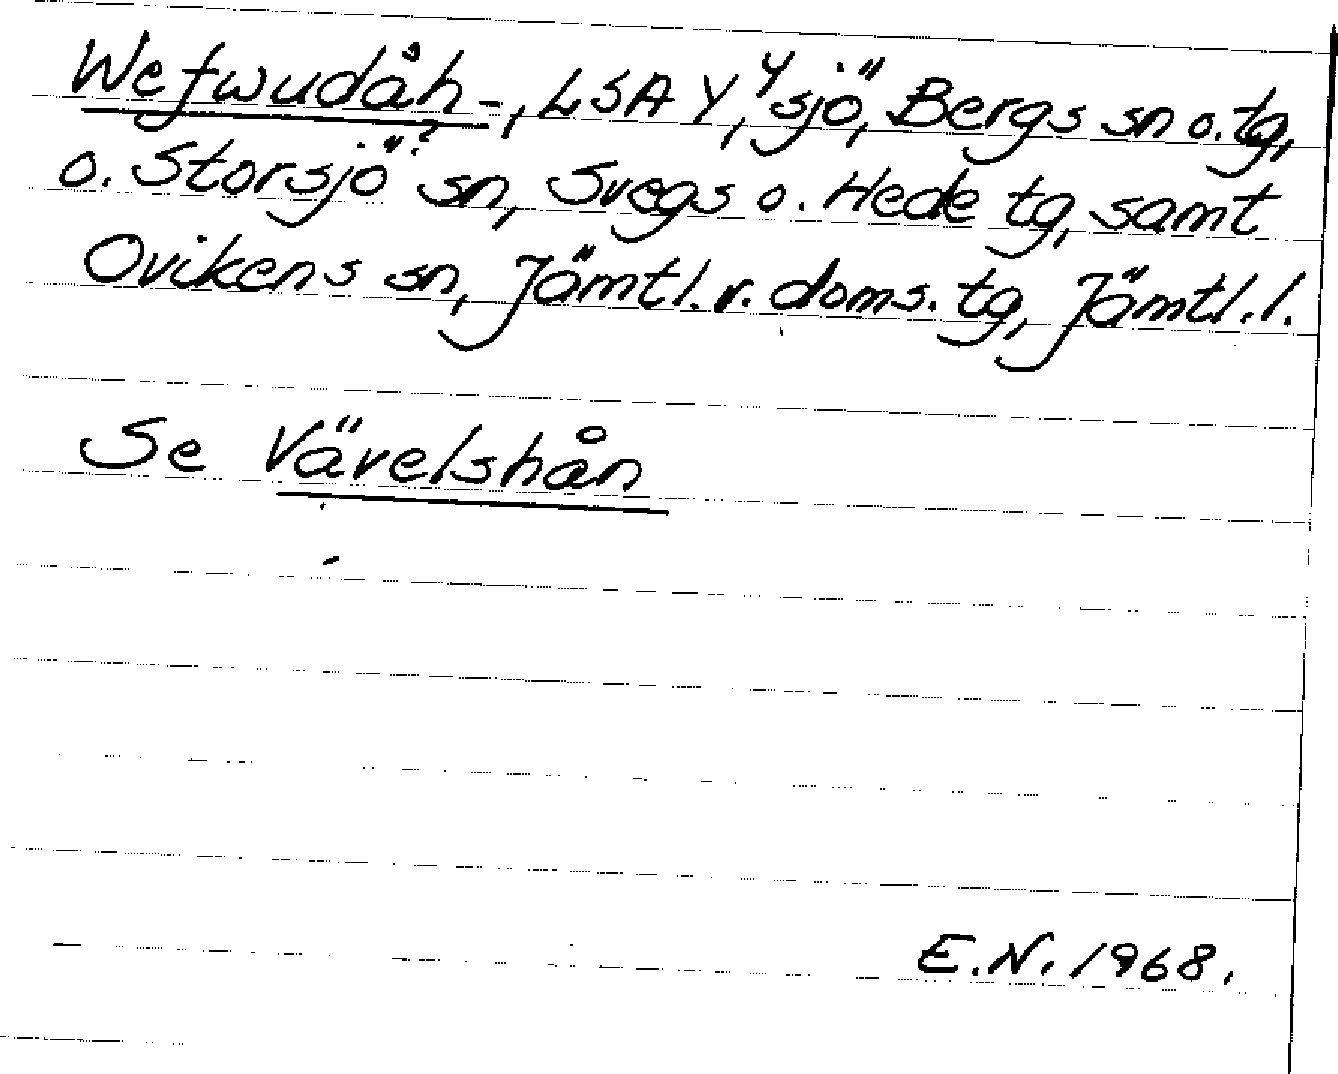 Wefwudåh-, LSA Y, y sjö, Bergs sn o. tg,
o. Storsjö? sn, Svegs o. Hede tg, samt
Ovikens sn, Jämtl. v. doms. tg, Jämtl. l.
Se Vävelshån
E.N. 1968.